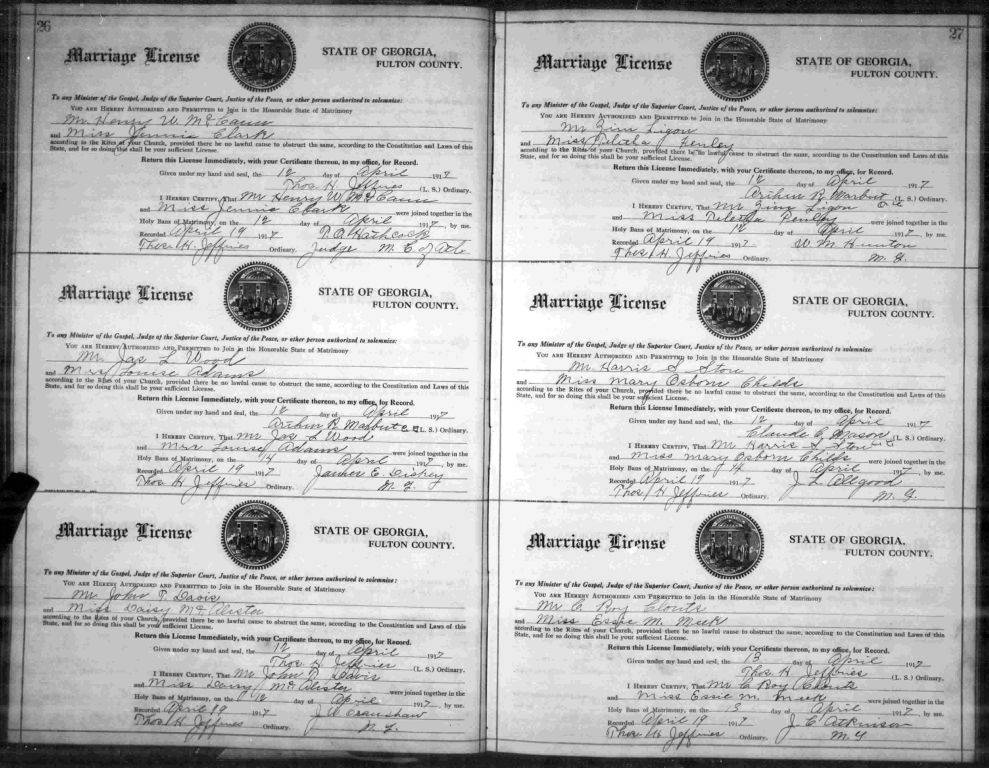 26
Marriage License
STATE OF GEORGIA,
FULTON COUNTY.
To any Minister of the Gospel, Judge of the Superior Court, Justice of the Peace, or other person authorized to solemnize:
YOU ARE HEREBY AUTHORIZED AND PERMITTED to Join in the Honorable State of Matrimony
Mr Henry W. McCann
and Miss Jennie Clark
according to the Rites of your Church, provided there be no lawful cause to obstruct the same, according to the Constitution and Laws of this
State, and for so doing this shall be your sufficient License.
Return this License Immediately, with your Certificate thereon, to my office, for Record.
Given under my hand and seal, the 12 day of April 1917
Thos H. Jeffries (L. S.) Ordinary.
I HEREBY CERTIFY, That Mr Henry W. McCann
and Miss Jennie Clark were joined together in the
Holy Bans of Matrimony, on the 12 day of April 1917, by me.
Recorded April 19 1917 T. O. Hathcock
Thos H. Jeffries Ordinary. Judge M. C. of Atl
Marriage License
STATE OF GEORGIA,
FULTON COUNTY.
To any Minister of the Gospel, Judge of the Superior Court, Justice of the Peace, or other person authorized to solemnize:
YOU ARE HEREBY AUTHORIZED AND PERMITTED to Join in the Honorable State of Matrimony
Mr Jas L Wood
and Mrs Louise Adams
according to the Rites of your Church, provided there be no lawful cause to obstruct the same, according to the Constitution and Laws of this
State, and for so doing this shall be your sufficient License.
Return this License Immediately, with your Certificate thereon, to my office, for Record.
Given under my hand and seal, the 12 day of April 1917
R. (L. S.) Ordinary.
I HEREBY CERTIFY, That Mr Jas L Wood
and Mrs Louise Adams were joined together in the
Holy Bans of Matrimony, on the 14 day of April 1917, by me.
Recorded April 19 1917 E.
Thos H Jeffries Ordinary. M. G.
Marriage License
STATE OF GEORGIA,
FULTON COUNTY.
To any Minister of the Gospel, Judge of the Superior Court, Justice of the Peace, or other person authorized to solemnize:
YOU ARE HEREBY AUTHORIZED AND PERMITTED to Join in the Honorable State of Matrimony
Mr John T. Davis
and Miss Daisy McAlister
according to the Rites of your Church, provided there be no lawful cause to obstruct the same, according to the Constitution and Laws of this
State, and for so doing this shall be your sufficient License.
Return this License Immediately, with your Certificate thereon, to my office, for Record.
Given under my hand and seal, the 12 day of April 1917
Thos H Jeffries (L. S.) Ordinary.
I HEREBY CERTIFY, That Mr John T. Davis
and Miss Daisy McAlister were joined together in the
Holy Bans of Matrimony, on the day of April 1917, by me.
Recorded April 19 1917 J. W.
Thos H Jeffries Ordinary. M. G.
27
Marriage License
STATE OF GEORGIA,
FULTON COUNTY.
To any Minister of the Gospel, Judge of the Superior Court, Justice of the Peace, or other person authorized to solemnize:
YOU ARE HEREBY AUTHORIZED AND PERMITTED to Join in the Honorable State of Matrimony
Mr Zim Ligon
and Miss
according to the Rites of your Church, provided there be no lawful cause to obstruct the same, according to the Constitution and Laws of this
State, and for so doing this shall be your sufficient License.
Return this License Immediately, with your Certificate thereon, to my office, for Record.
Given under my hand and seal, the 12 day of April 1917
R. (L. S.) Ordinary.
I HEREBY CERTIFY, That Mr Zim Ligon
and Miss were joined together in the
Holy Bans of Matrimony, on the 12 day of April 1917, by me.
Recorded April 19 1917 W. M. Hunton
Thos H. Jeffries Ordinary. M. G.
Marriage License
STATE OF GEORGIA,
FULTON COUNTY.
To any Minister of the Gospel, Judge of the Superior Court, Justice of the Peace, or other person authorized to solemnize:
YOU ARE HEREBY AUTHORIZED AND PERMITTED to Join in the Honorable State of Matrimony
Mr Harris
and Miss Mary Osborn Childs
according to the Rites of your Church, provided there be no lawful cause to obstruct the same, according to the Constitution and Laws of this
State, and for so doing this shall be your sufficient License.
Return this License Immediately, with your Certificate thereon, to my office, for Record.
Given under my hand and seal, the 12 day of April 1917
Claude C. Mason (L. S.) Ordinary.
I HEREBY CERTIFY, That Mr Harris
and Miss Mary Osborn Childs were joined together in the
Holy Bans of Matrimony, on the 14 day of April 1917, by me.
Recorded April 19 1917 J L Allgood
Thos H Jeffries Ordinary. M. G.
Marriage License
STATE OF GEORGIA,
FULTON COUNTY.
To any Minister of the Gospel, Judge of the Superior Court, Justice of the Peace, or other person authorized to solemnize:
YOU ARE HEREBY AUTHORIZED AND PERMITTED to Join in the Honorable State of Matrimony
Mr C. Roy Clouts
and Miss Essie M. Meek
according to the Rites of your Church, provided there be no lawful cause to obstruct the same, according to the Constitution and Laws of this
State, and for so doing this shall be your sufficient License.
Return this License Immediately, with your Certificate thereon, to my office, for Record.
Given under my hand and seal, the 13 day of April 1917
Thos H Jeffries (L. S.) Ordinary.
I HEREBY CERTIFY, That Mr C Roy Clouts
and Miss Essie M. Meek were joined together in the
Holy Bans of Matrimony, on the 13 day of April 1917, by me.
Recorded April 19 1917 J. C. Atkinson
Thos H Jeffries Ordinary. M. G